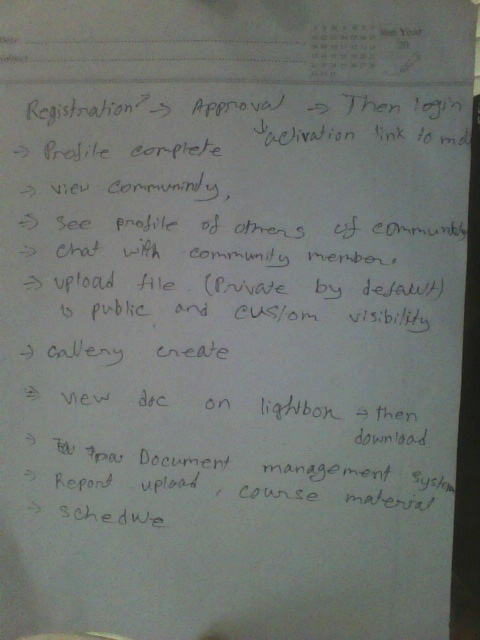 Registration → Approval → Then login
↳ activation link to
→ Profile complete
→ view community,
→ see profile of others of community
→ chat with community member.
→ upload file. (Private by default)
↳ public and custom visibility
→ gallery create
→ view doc on lightbox → then
download
→ Document management system
→ Report upload, course material
→ schedule